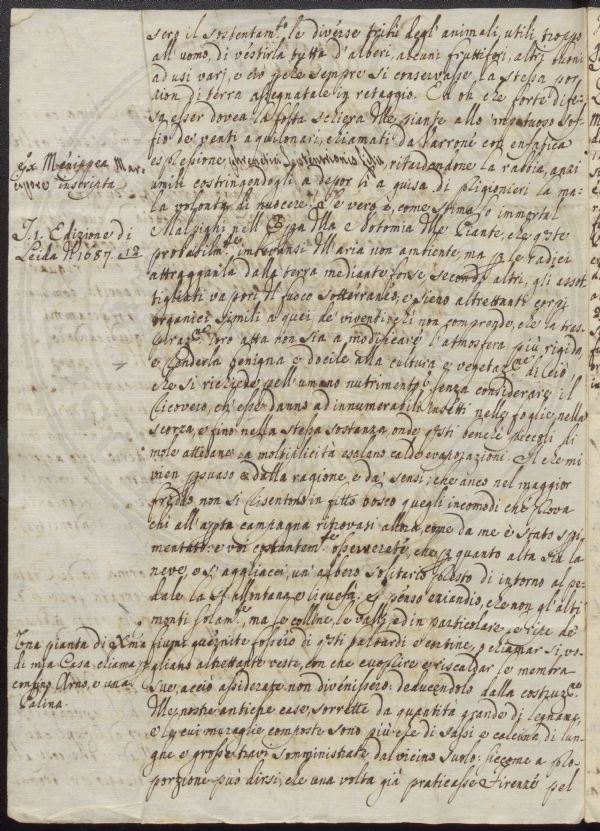 sero il sostentam.to le diverse tribù degl'animali, utili troppo
all'uomo, di vestirla tutta d'alberi, alcuni fruttiferi, altri buoni
ad usi vari, e ciò perche sempre si conservasse la stessa por
zion di terra assegnatale in retaggio. Ed oh che forte dife-
sa esser dovea la folta schiera delle piante allo impetuoso sof
fio de' venti aquilonari, chiamati da Varrone con enfatica
espressione phrenetici septentrionis filii, ritardandone la rabbia, anzi
umili costringendogli a depor li a guisa di prigionieri la ma-
la volontà di nuocere. Se vero è, come stima lo immortal
Malpighi nell' della e Notomia delle Piante, che queste
probabilm.te imbevansi dell'aria non ambiente, ma per le radici
attragganla dalla terra mediante forse, secondo altri, gli assot
tigliati vapori del fuoco sotterraneo, e sieno altrettanti corpi
organici simili a quei de' viventi; chi non comprende, che la tras-
piraz.ne loro atta non sia a modificare l'atmosfera più rigida,
e renderla benigna e docile alla cultura e vegetaz.ne di ciò
che si richiede nell'umano nutrimento, senza considerare il
ricovero, ch'esse danno ad innumerabili insetti nelle foglie, nella
scorza, e fino nella stessa sostanza, onde questi benche piccoli di
mole attesane la moltiplicità esalano calde evaporazioni. Il che mi
vien persuaso e dalla ragione, e da' sensi; che anco nel maggior
freddo non si risentono in fitto bosco quegli incomodi che prova
chi all'aperta campagna ritrovasi allora, come da me è stato speri
mentato: e voi costantem.te osserverete, che per quanto alta sia la
neve, e s'agghiacci, un albero solitario presto di intorno al pe-
dale la si allontana e liquefà. Io penso eziandio, che non gl'alti
monti solam.te, ma le colline, le valli, ed in particolare le ripe de'
fiumi guernite fossero di questi baloardi e cortine, o chiamar si vo-
gliano altrettante veste, con che cuoprire e riscaldar le membra
sue, acciò assiderate non divenissero: deducendolo dalla costruz.ne
delle nostre antiche case, sorrette da quantità grande di legnami,
e le cui muraglie composte sono più che di sassi e calcina di lun-
ghe e grosse travi somministrate dal vicino suolo: siccome a pro-
porzione può dirsi, che una volta già praticasse Firenze pel
ex Menippea Mar-
cipore inscripta
T. 1. Edizione di
Leida del 1687. e 12
Una pianta di
di mia Casa chiama per
confino Arno, e una
Salina.